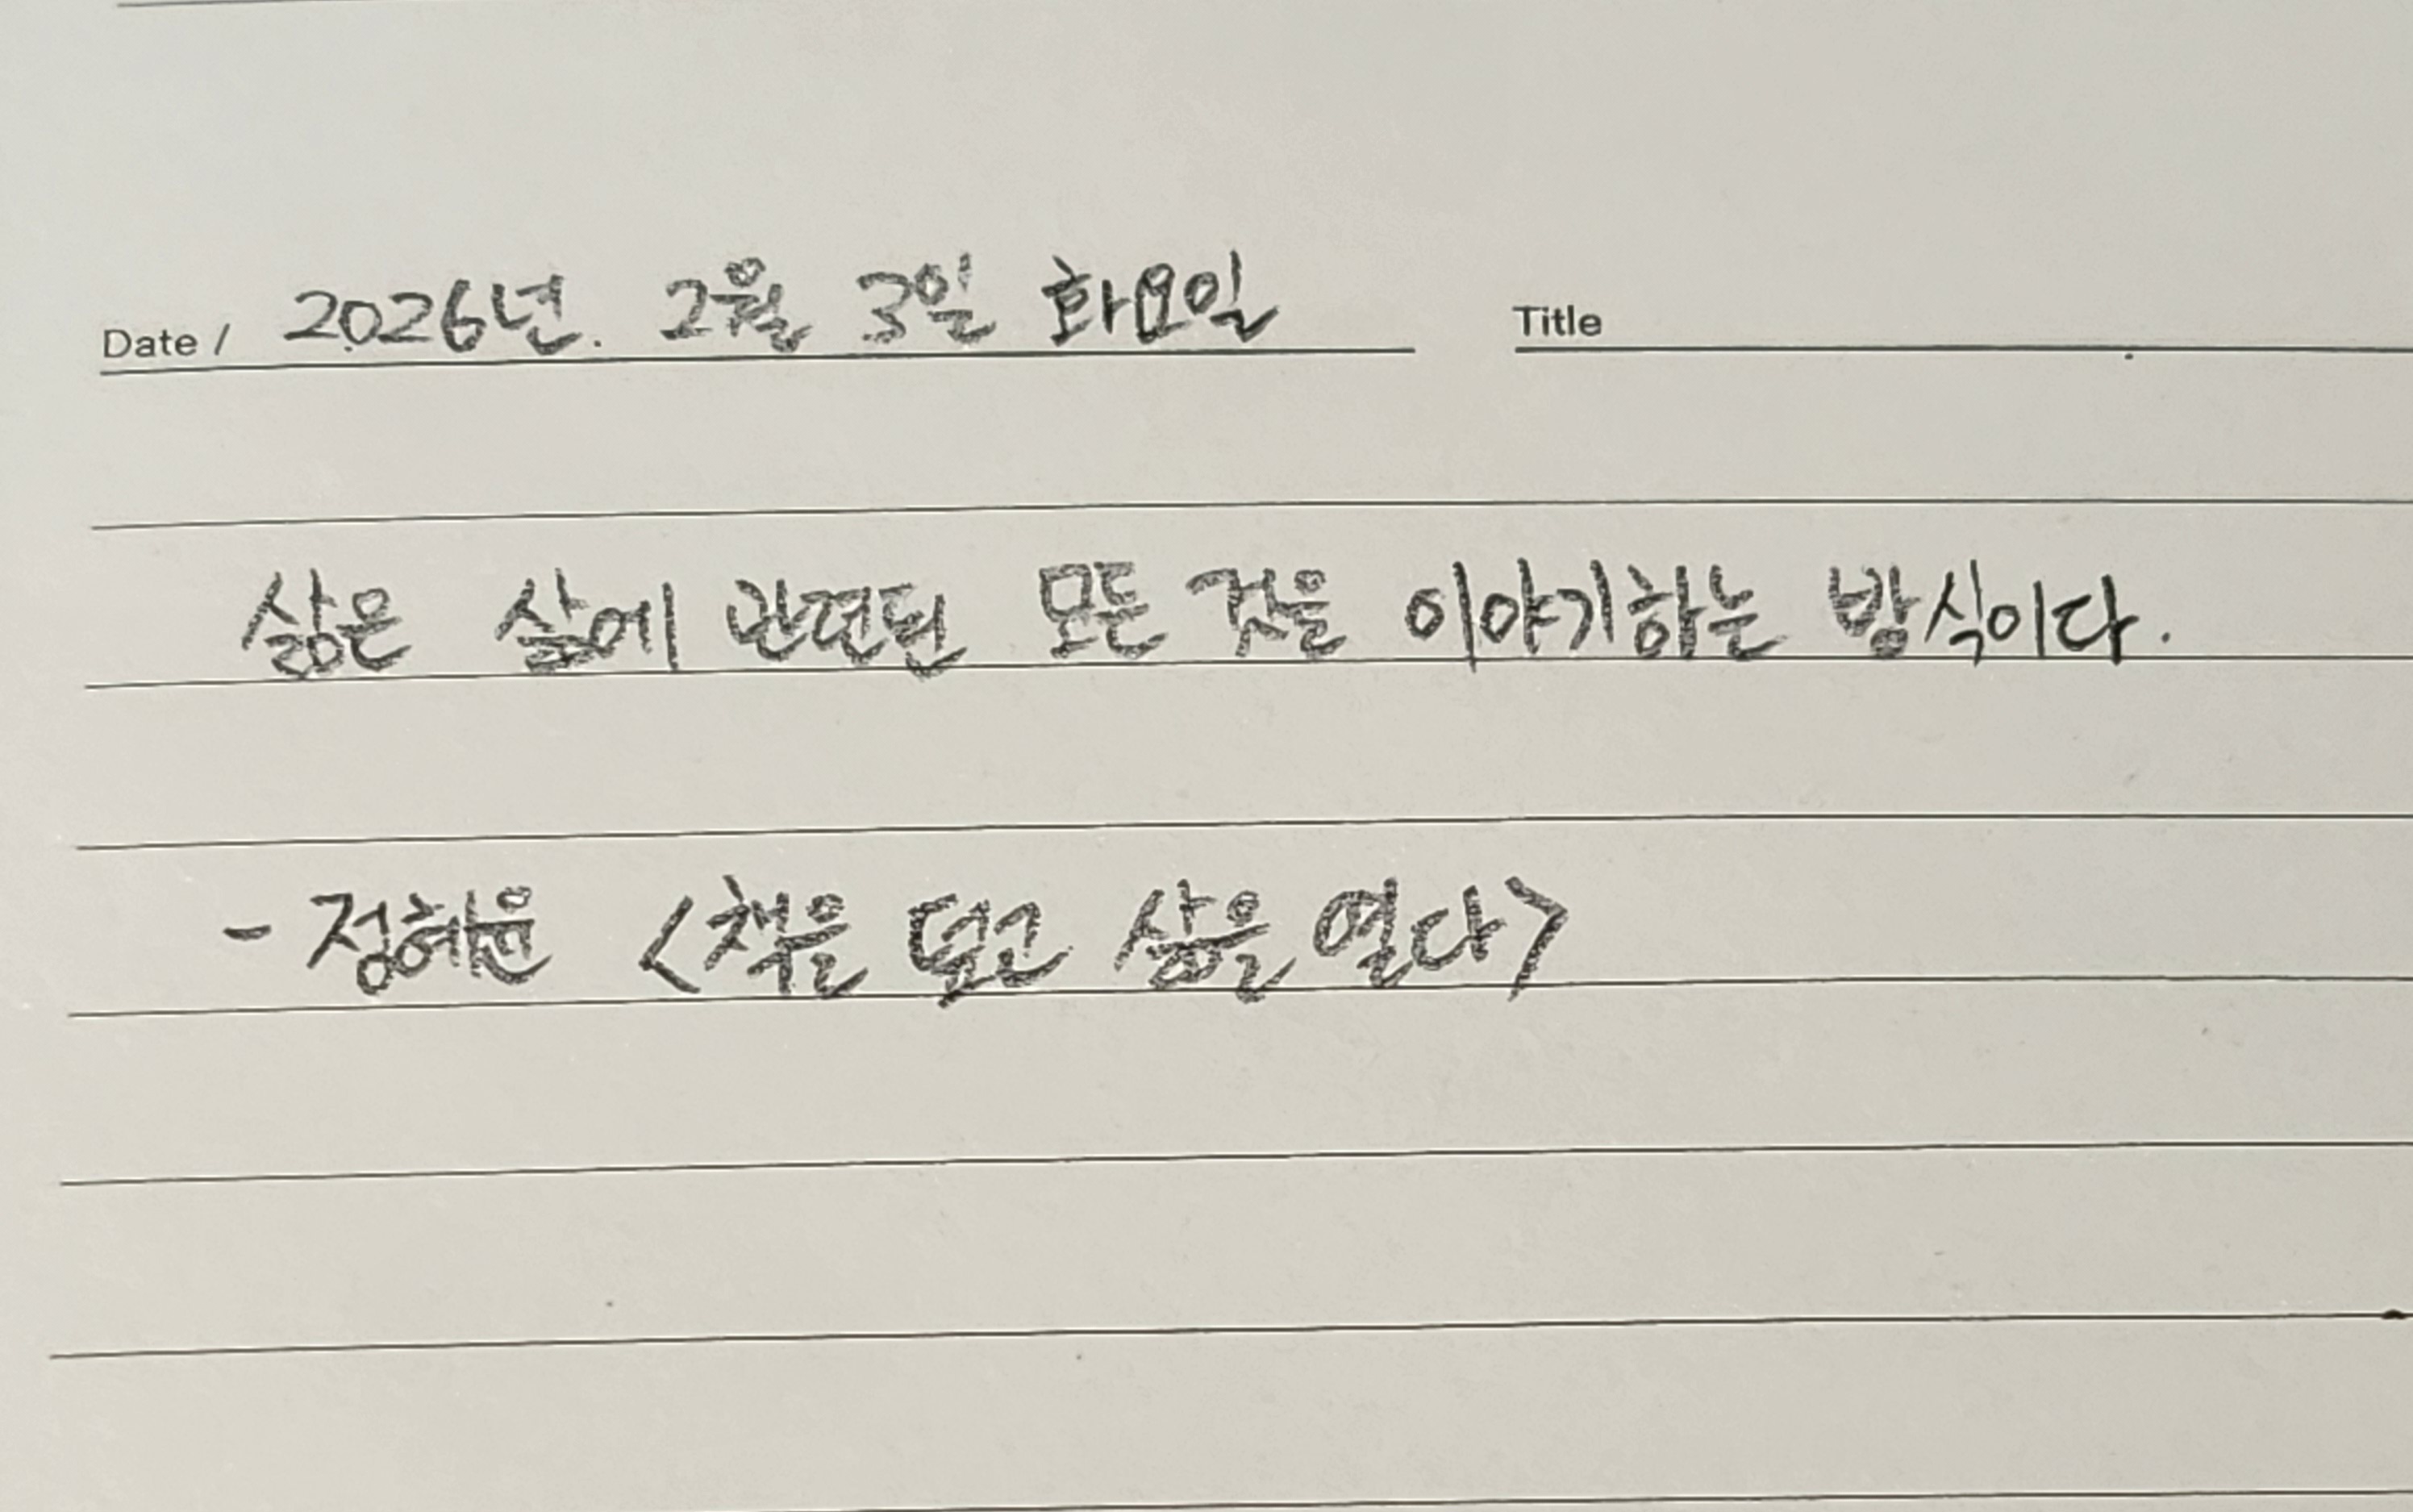 Date / 2026년. 2월 3일 화요일 Title
삶은 삶에 관련된 모든 것을 이야기하는 방식이다.
- 정혜윤 <책을 덮고 삶을 열다>